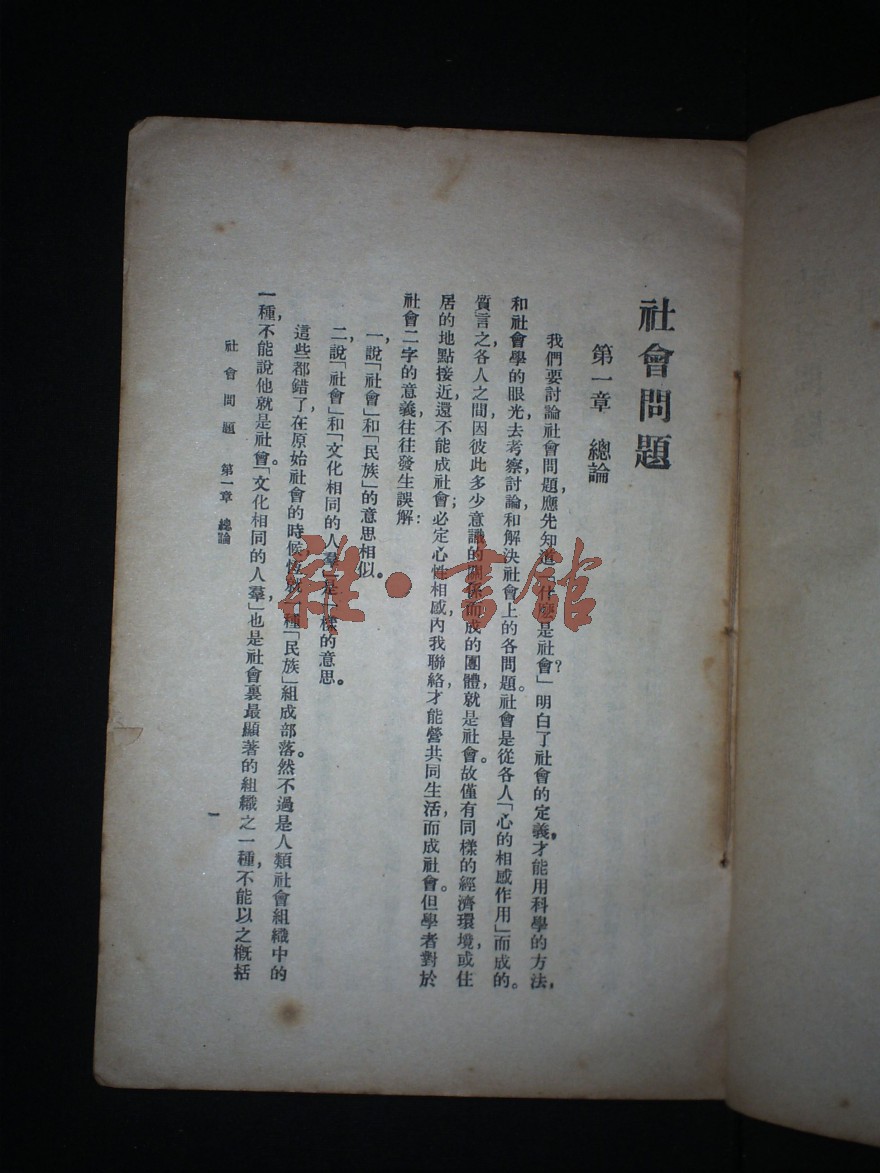 社會問題
第一章 總論
我們要討論社會問題，應先知道「什麼是社會？」明白了社會的定義，才能用科學的方法，
和社會學的眼光，去考察討論，和解決社會上的各問題。社會是從各人「心的相感作用」而成的。
質言之，各人之間，因彼此多少意識的關係而成的團體，就是社會。故僅有同樣的經濟環境，或住
居的地點接近，還不能成社會；必定心性相感，內我聯絡，才能營共同生活，而成社會。但學者對於
社會二字的意義，往往發生誤解：
一，說「社會」和「民族」的意思相似。
二，說「社會」和「文化相同的人羣」是一樣的意思。
這些都錯了，在原始社會的時候，恆就一種「民族」組成部落。然不過是人類社會組織中的
一種，不能說他就是社會。「文化相同的人羣」也是社會裏最顯著的組織之一種，不能以之概括
社會問題 第一章 總論
一
雜·書館